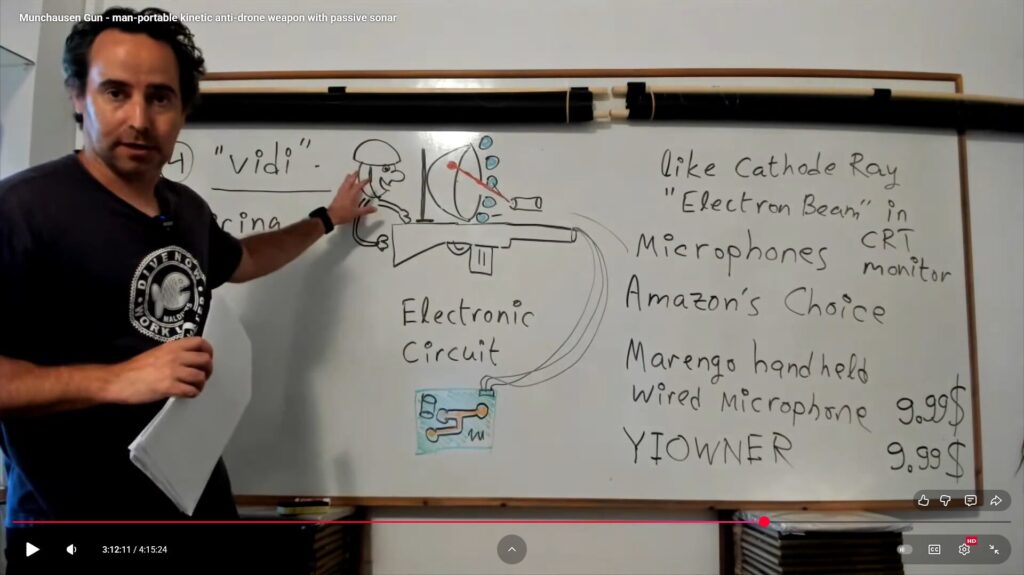 Munchausen Gun - man-portable kinetic anti-drone weapon with passive sonar
4 "Vidi" -
ring
like Cathode Ray
"Electron Beam" in
CRT
monitor
Microphones
Amazon's Choice
Electronic
Circuit
Marengo handheld
Wired Microphone 9.99$
YIOWNER 9.99$
DIVENOW
MALDIVES
HD
CC
3:12:11 / 4:15:24